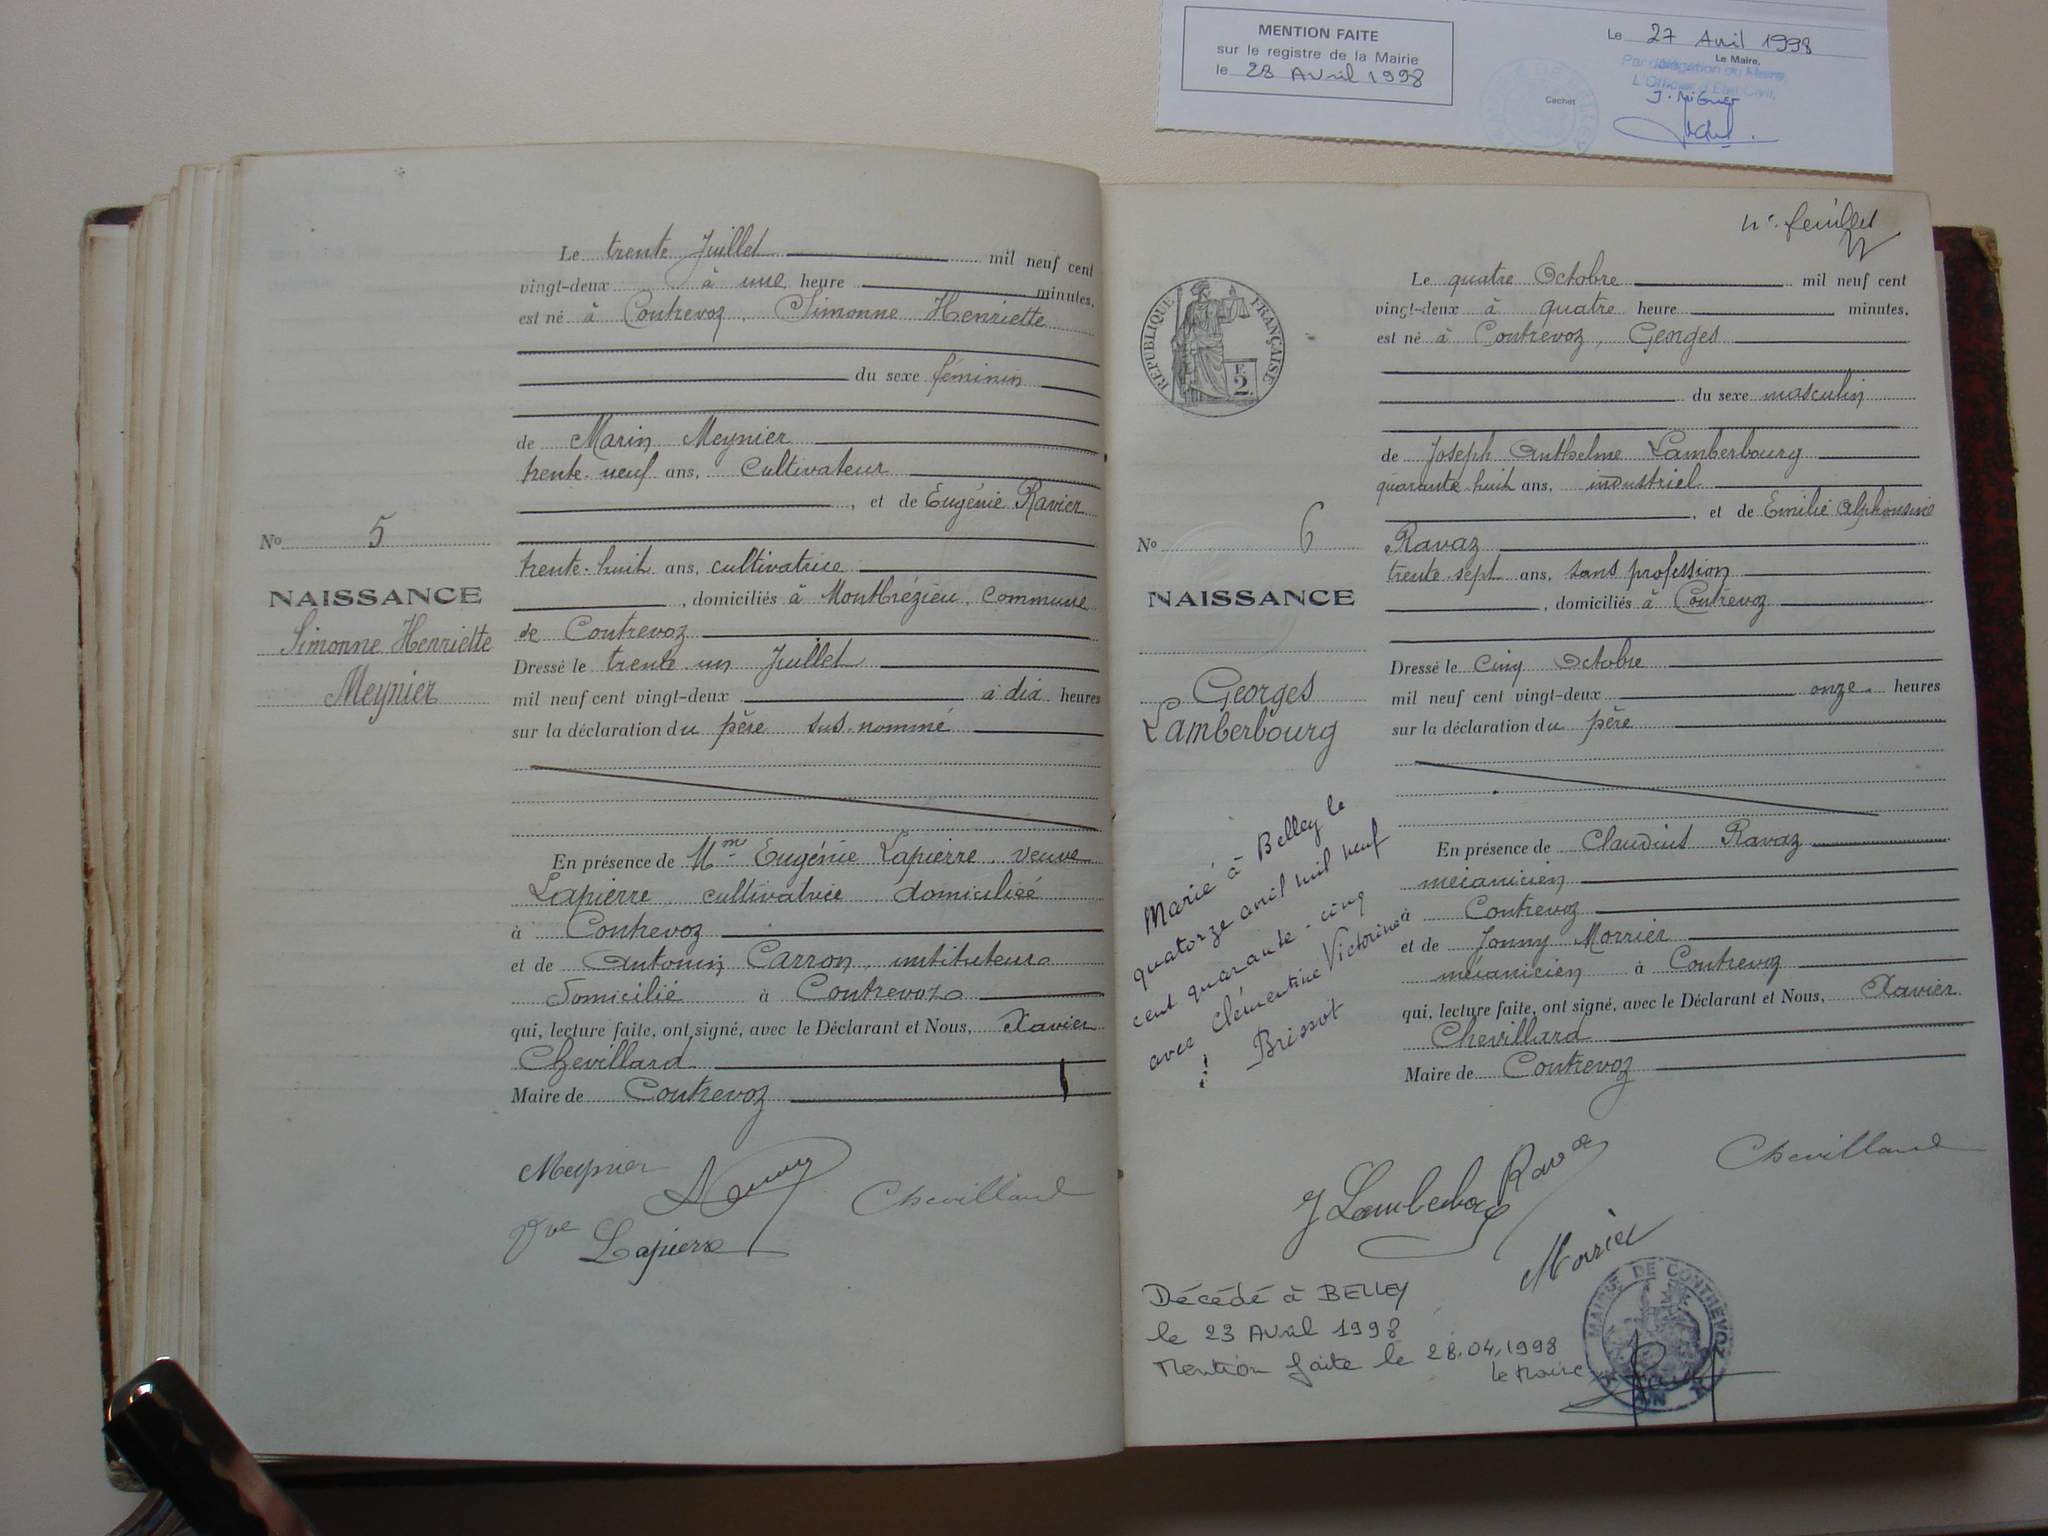 MENTION FAITE
sur le registre de la Mairie
le 28 Avril 1998
Le 27 Avril 1998
Le Maire,
Par délégation du Maire
L'Officier d'Etat Civil,
Cachet
Le trente Juillet mil neuf cent
vingt-deux à une heure minutes,
est né à Contrevoz, Simonne Henriette
du sexe féminin
de Marin Meynier
trente-neuf ans, cultivateur
, et de Eugénie Ravier
No 5
trente-huit ans, cultivatrice
NAISSANCE
, domiciliés à Montbrézieu, commune
Simonne Henriette
de Contrevoz
Meynier
Dressé le trente un Juillet
mil neuf cent vingt-deux à dix heures
sur la déclaration du père sus-nommé
En présence de Mme Eugénie Lapierre, veuve
Lapierre, cultivatrice domiciliée
à Contrevoz
et de Antonin Carron, instituteur
domicilié à Contrevoz
qui, lecture faite, ont signé, avec le Déclarant et Nous, Xavier
Chevillard
Maire de Contrevoz
Meynier
Chevillard
Vve Lapierre
nc. feuillet
RÉPUBLIQUE FRANÇAISE
F.
2.
Le quatre Octobre mil neuf cent
vingt-deux à quatre heure minutes,
est né à Contrevoz, Georges
du sexe masculin
de Joseph Anthelme Lamberbourg
quarante huit ans, industriel
, et de Emilie Alphonsine
No 6
Ravaz
trente sept ans, sans profession
NAISSANCE
, domiciliés à Contrevoz
Georges
Lamberbourg
Dressé le cinq Octobre
mil neuf cent vingt-deux onze heures
sur la déclaration du père
Marié à Belley le
quatorze août mil neuf
cent quarante-cinq
avec Clémentine Victorine
Brissot
En présence de Claudius Ravaz
mécanicien
à Contrevoz
et de Jonny Morrier
mécanicien à Contrevoz
qui, lecture faite, ont signé, avec le Déclarant et Nous, Xavier
Chevillard
Maire de Contrevoz
J Lamberbourg
Ravaz
Chevillard
Morrier
Décédé à BELLEY
le 23 Avril 1998
Mention faite le 28.04.1998
le Maire
MAIRIE DE CONTREVOZ